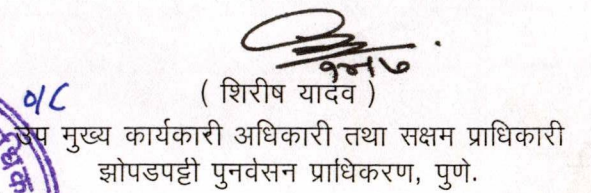 o/c
( शिरीष यादव )
उप मुख्य कार्यकारी अधिकारी तथा सक्षम प्राधिकारी
झोपडपट्टी पुनर्वसन प्राधिकरण, पुणे.